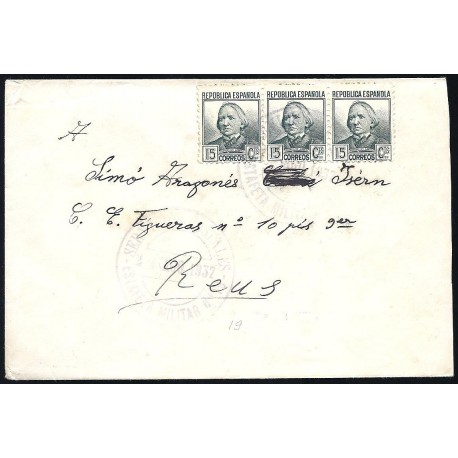 REPÚBLICA ESPAÑOLA REPÚBLICA ESPAÑOLA REPÚBLICA ESPAÑOLA
15 CORREOS CTS 15 CORREOS CTS 15 CORREOS CTS
A
Simó Aragonés Isérn
C. E. Figueras nº 10 pis 9er
Reus
MILITAR
19